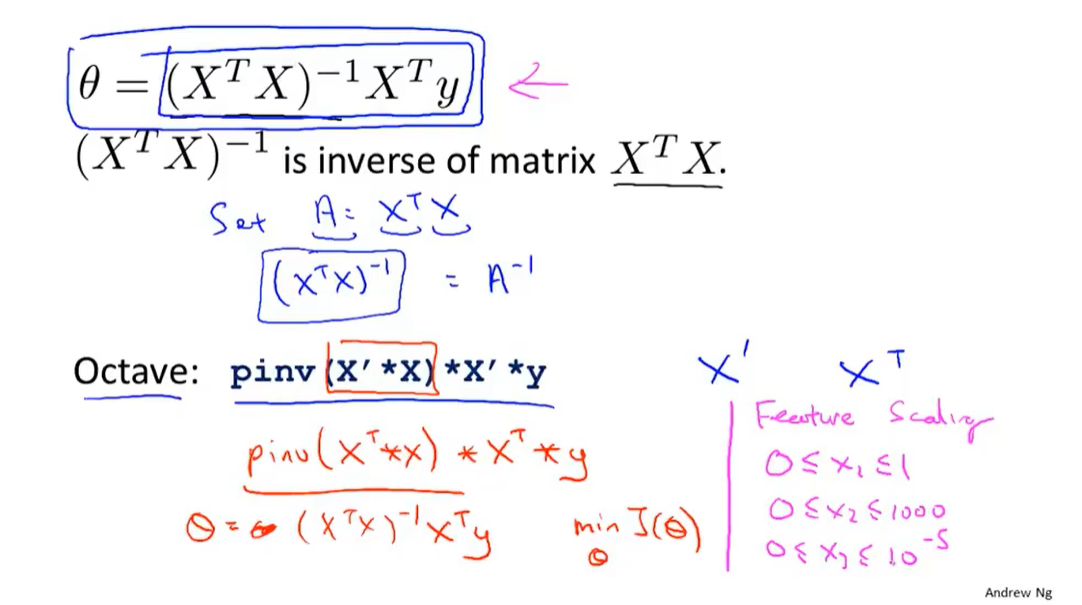 θ = (XᵀX)⁻¹Xᵀy ←
(XᵀX)⁻¹ is inverse of matrix XᵀX.
Set A = XᵀX
(XᵀX)⁻¹ = A⁻¹
Octave: pinv(X'*X)*X'*y
X' Xᵀ
pinv(Xᵀ*X)*Xᵀ*y
θ = (XᵀX)⁻¹Xᵀy
min J(θ)
θ
Feature Scaling
0 ≤ x₁ ≤ 1
0 ≤ x₂ ≤ 1000
0 ≤ x₃ ≤ 10⁻⁵
Andrew Ng